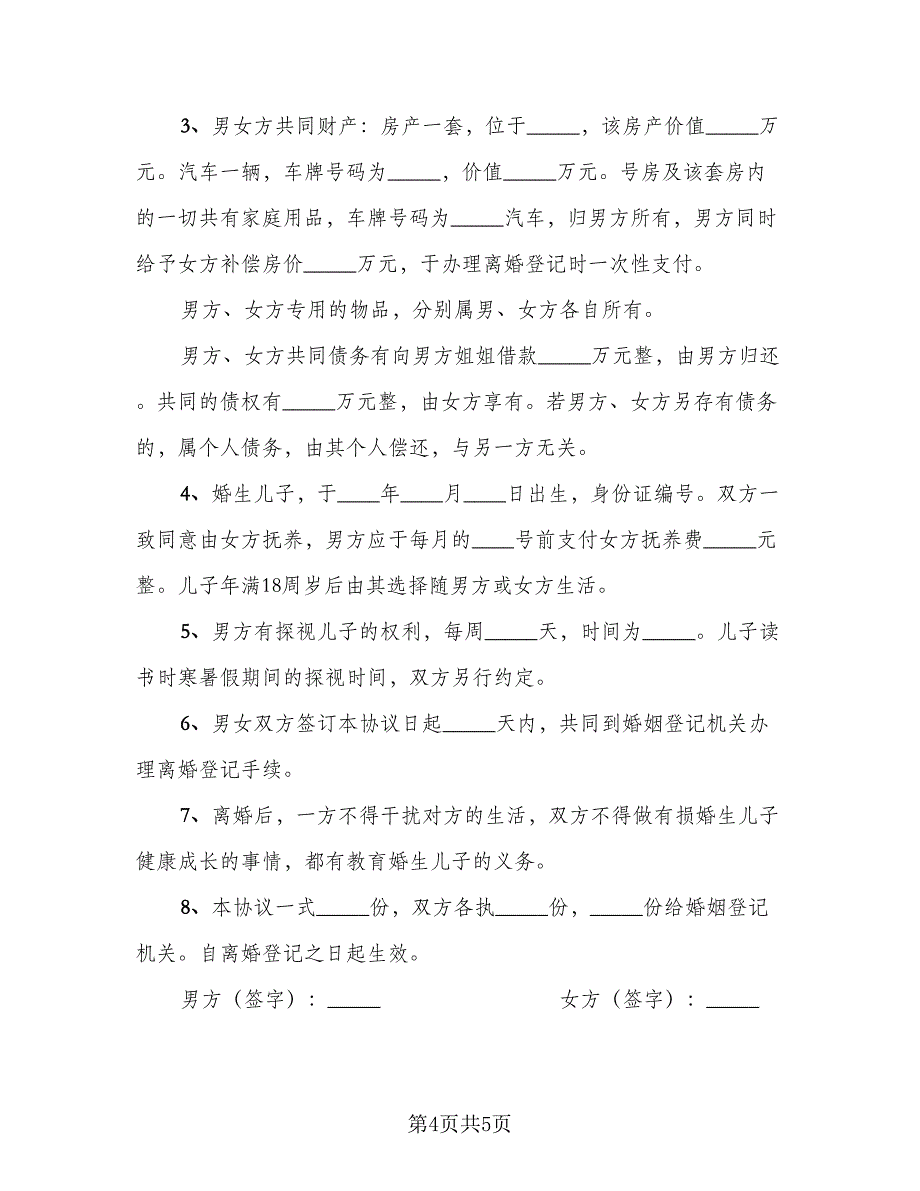 3、男女方共同财产：房产一套，位于_____，该房产价值_____万
元。汽车一辆，车牌号码为_____，价值_____万元。号房及该套房内
的一切共有家庭用品，车牌号码为_____汽车，归男方所有，男方同时
给予女方补偿房价_____万元，于办理离婚登记时一次性支付。
男方、女方专用的物品，分别属男、女方各自所有。
男方、女方共同债务有向男方姐姐借款_____万元整，由男方归还
。共同的债权有_____万元整，由女方享有。若男方、女方另存有债务
的，属个人债务，由其个人偿还，与另一方无关。
4、婚生儿子，于____年____月____日出生，身份证编号。双方一
致同意由女方抚养，男方应于每月的____号前支付女方抚养费_____元
整。儿子年满18周岁后由其选择随男方或女方生活。
5、男方有探视儿子的权利，每周_____天，时间为_____。儿子读
书时寒暑假期间的探视时间，双方另行约定。
6、男女双方签订本协议日起_____天内，共同到婚姻登记机关办
理离婚登记手续。
7、离婚后，一方不得干扰对方的生活，双方不得做有损婚生儿子
健康成长的事情，都有教育婚生儿子的义务。
8、本协议一式_____份，双方各执_____份，_____份给婚姻登记
机关。自离婚登记之日起生效。
男方（签字）：_____ 女方（签字）：_____
第4页共5页